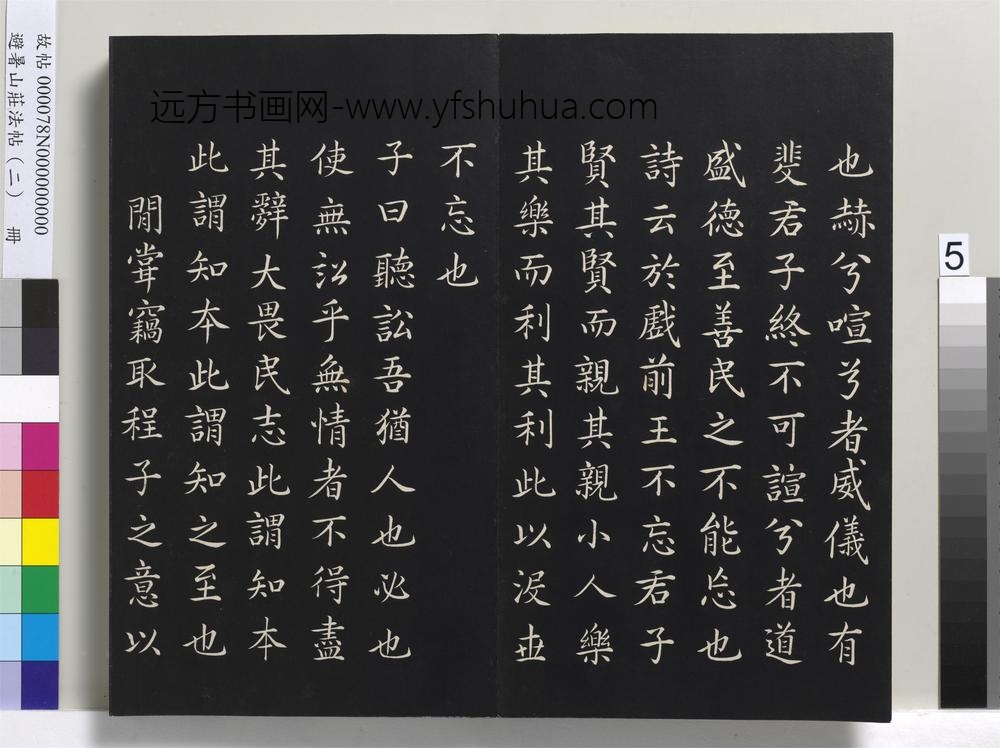 故帖 000078N000000000
避暑山莊法帖(二) 冊
远方书画网-www.yfshuhua.com
5
也赫兮喧兮者威儀也有
斐君子終不可諠兮者道
盛德至善民之不能忘也
詩云於戲前王不忘君子
賢其賢而親其親小人樂
其樂而利其利此以沒世
不忘也
子曰聽訟吾猶人也必也
使無訟乎無情者不得盡
其辭大畏民志此謂知本
此謂知本此謂知之至也
間嘗竊取程子之意以